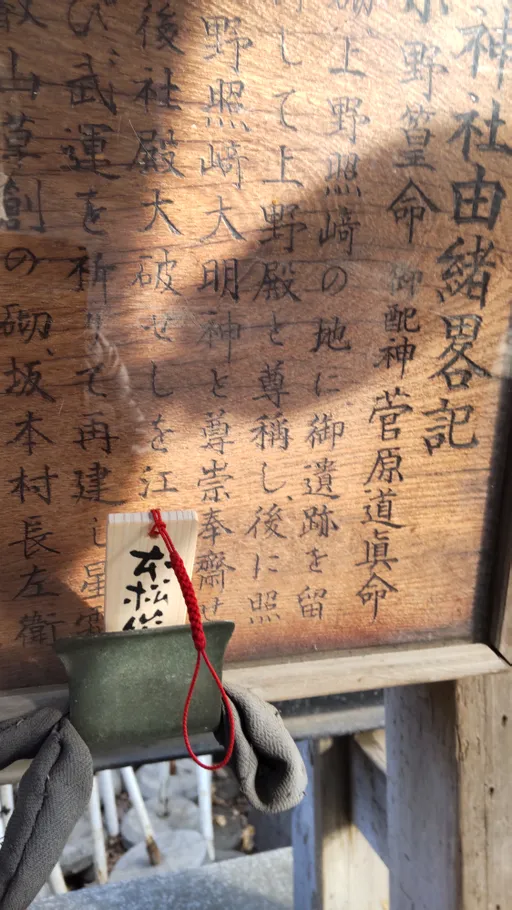 神社由緒畧記
小野篁命 御配神 菅原道眞命
上野照崎の地に御遺跡を留
して上野殿と尊稱し、後に照
野照崎大明神と尊崇奉齋せ
後社殿大破せしを江
び、武運を祈りて再建し星霜
山草創の砌、坂本村長左衛
本松